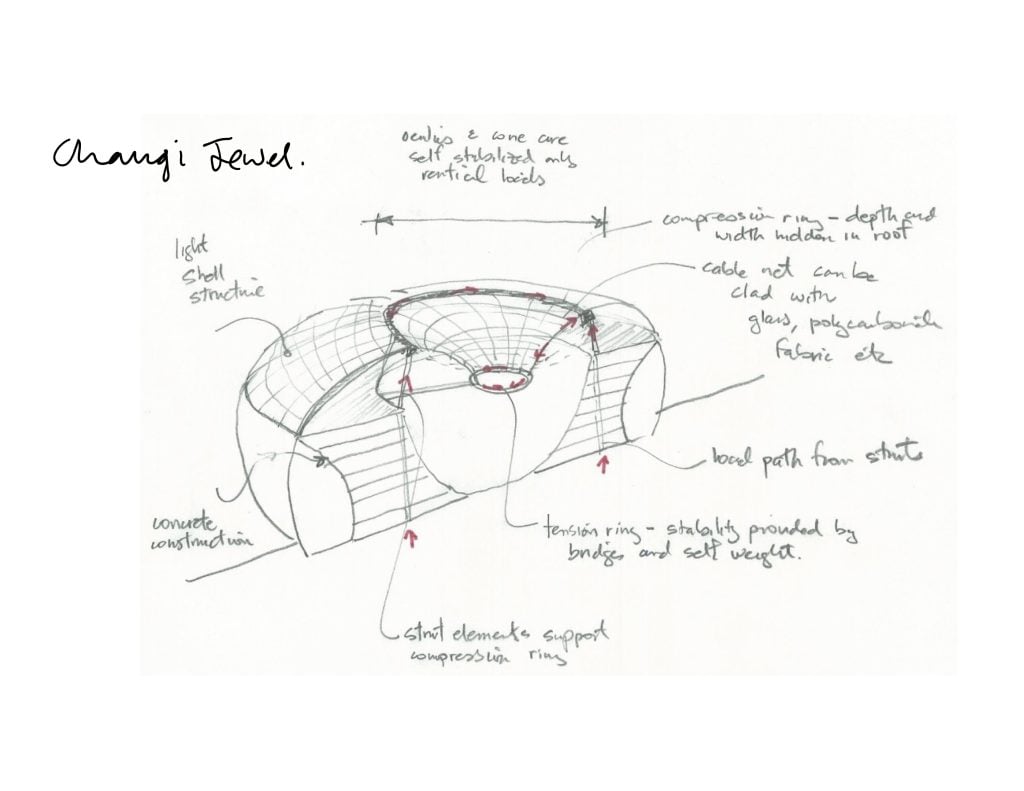 Changi Jewel.
oculus & cone are
self stabilized only
vertical loads
compression ring - depth and
width hidden in roof
light
shell
structure
cable net can be
clad with
glass, polycarbonate
fabric etc
load path from struts
concrete
construction
tension ring - stability provided by
bridges and self weight.
strut elements support
compression ring